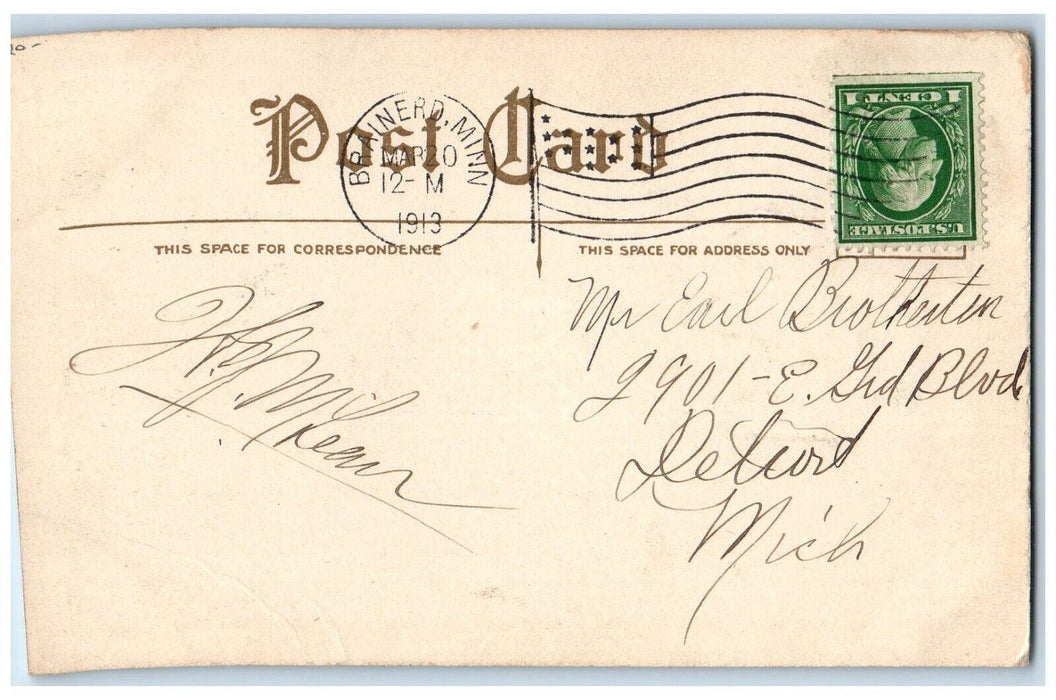 20-
Post Card
BRAINERD, MINN
MAR 20
12-M
1913
1 CENT 1
U.S. POSTAGE
THIS SPACE FOR CORRESPONDENCE
THIS SPACE FOR ADDRESS ONLY
Mr Earl Brotherton
2901-E. Grd Blvd
Detroit
Mich
McKean